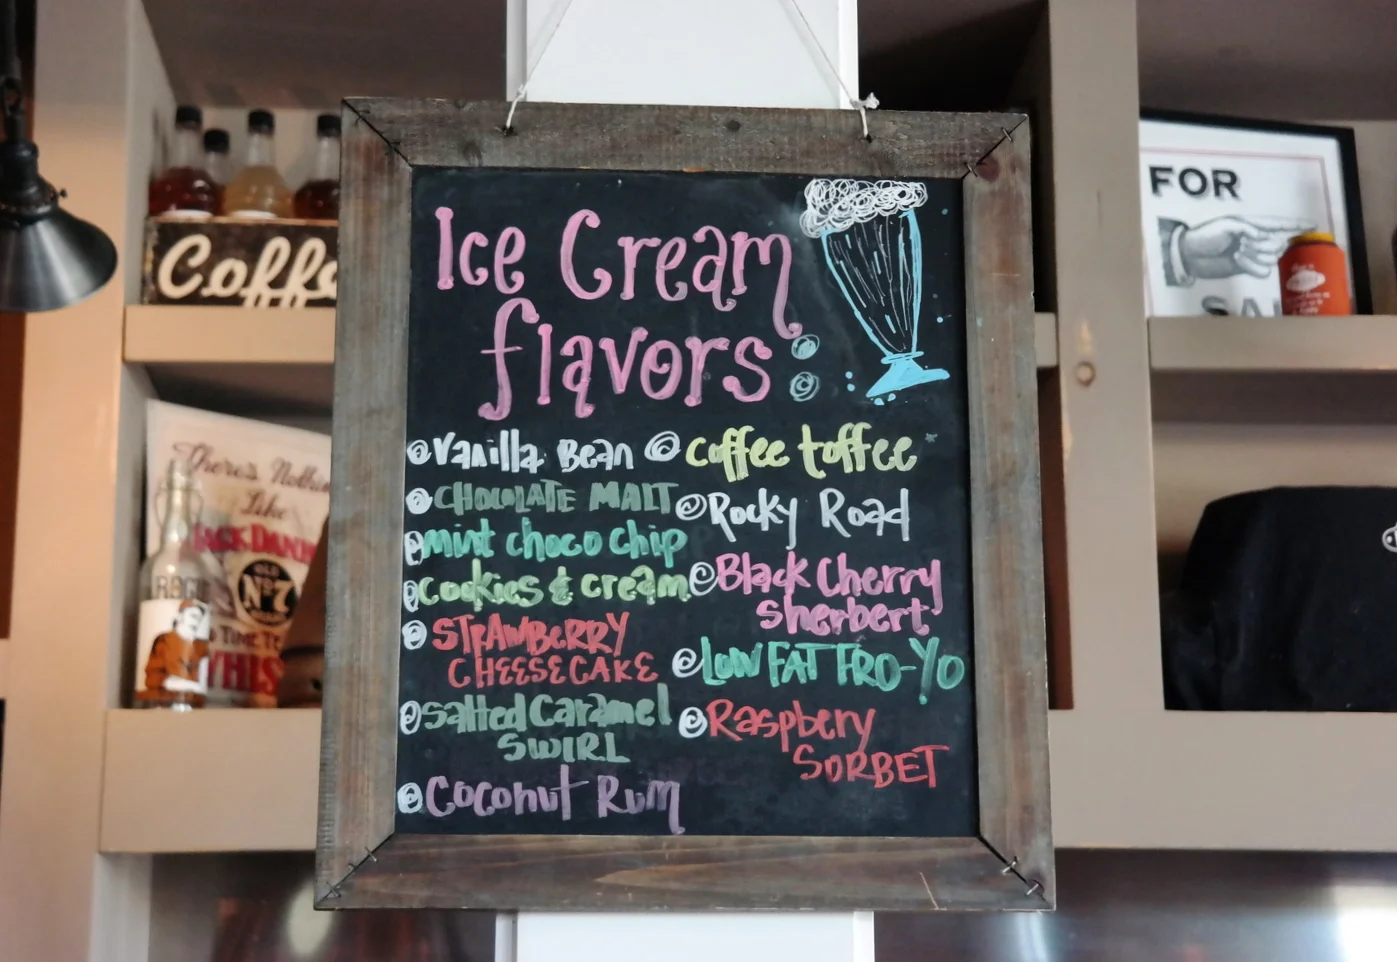 Ice Cream
flavors:
Vanilla Bean
CHOCOLATE MALT
mint choco chip
cookies & cream
STRAWBERRY
CHEESECAKE
Salted Caramel
SWIRL
Coconut Rum
coffee toffee
Rocky Road
Black Cherry
sherbert
LOW FAT FRO-YO
Raspbery
SORBET
Coffe
There's Nothin
Like
JACK DANI
OLD
No 7
TIME TE
WHIS
FOR
SAL